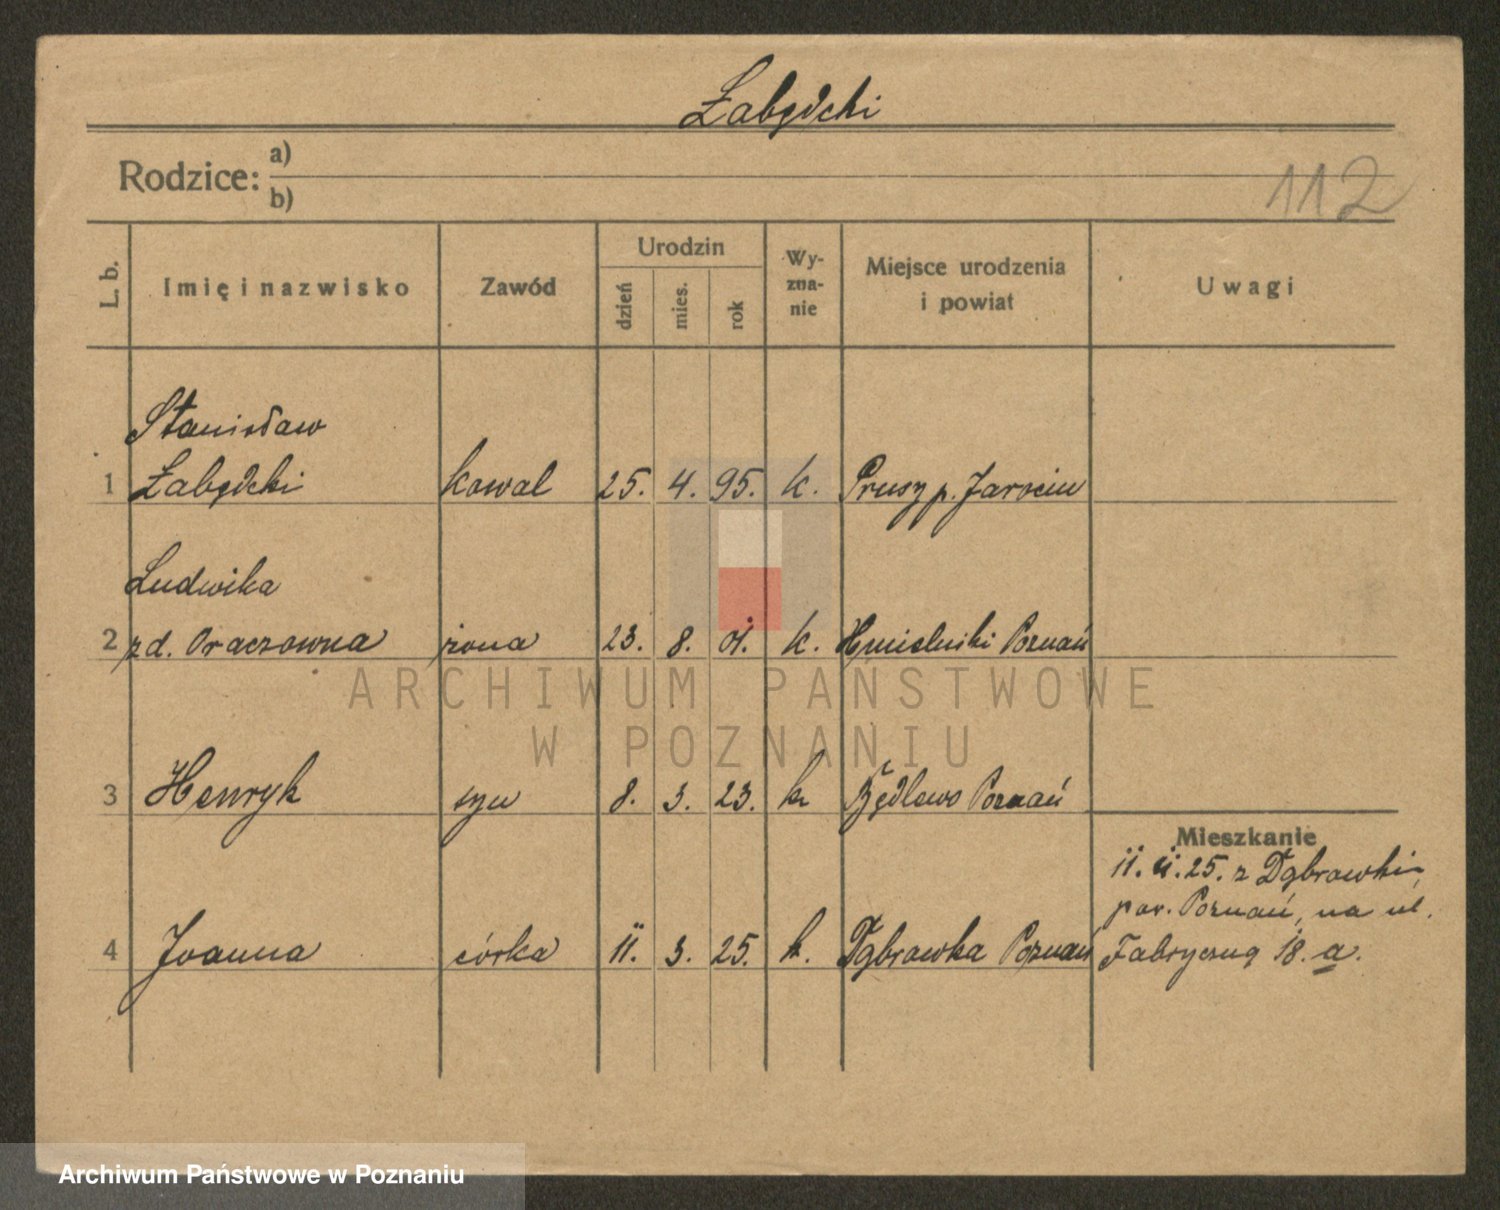 Łabędzki
Rodzice: a)
b)
112
L. b.
Imię i nazwisko
Zawód
Urodzin
dzień
mies.
rok
Wy-
zna-
nie
Miejsce urodzenia
i powiat
Uwagi
Stanisław
1 Łabędzki kowal 25. 4. 95. k. Prusy p. Jarocin
Ludwika
2 zd. Oraczowna żona 23. 8. 01. k. Hmielniki Poznań
3 Henryk syn 8. 3. 23. k Będlewo Poznań
Mieszkanie
11. 4. 25. z Dąbrówki
pow. Poznań, na ul.
4 Joanna córka 11. 3. 25. k. Dąbrówka Poznań Fabryczną 18. a.
ARCHIWUM PAŃSTWOWE
W POZNANIU
Archiwum Państwowe w Poznaniu